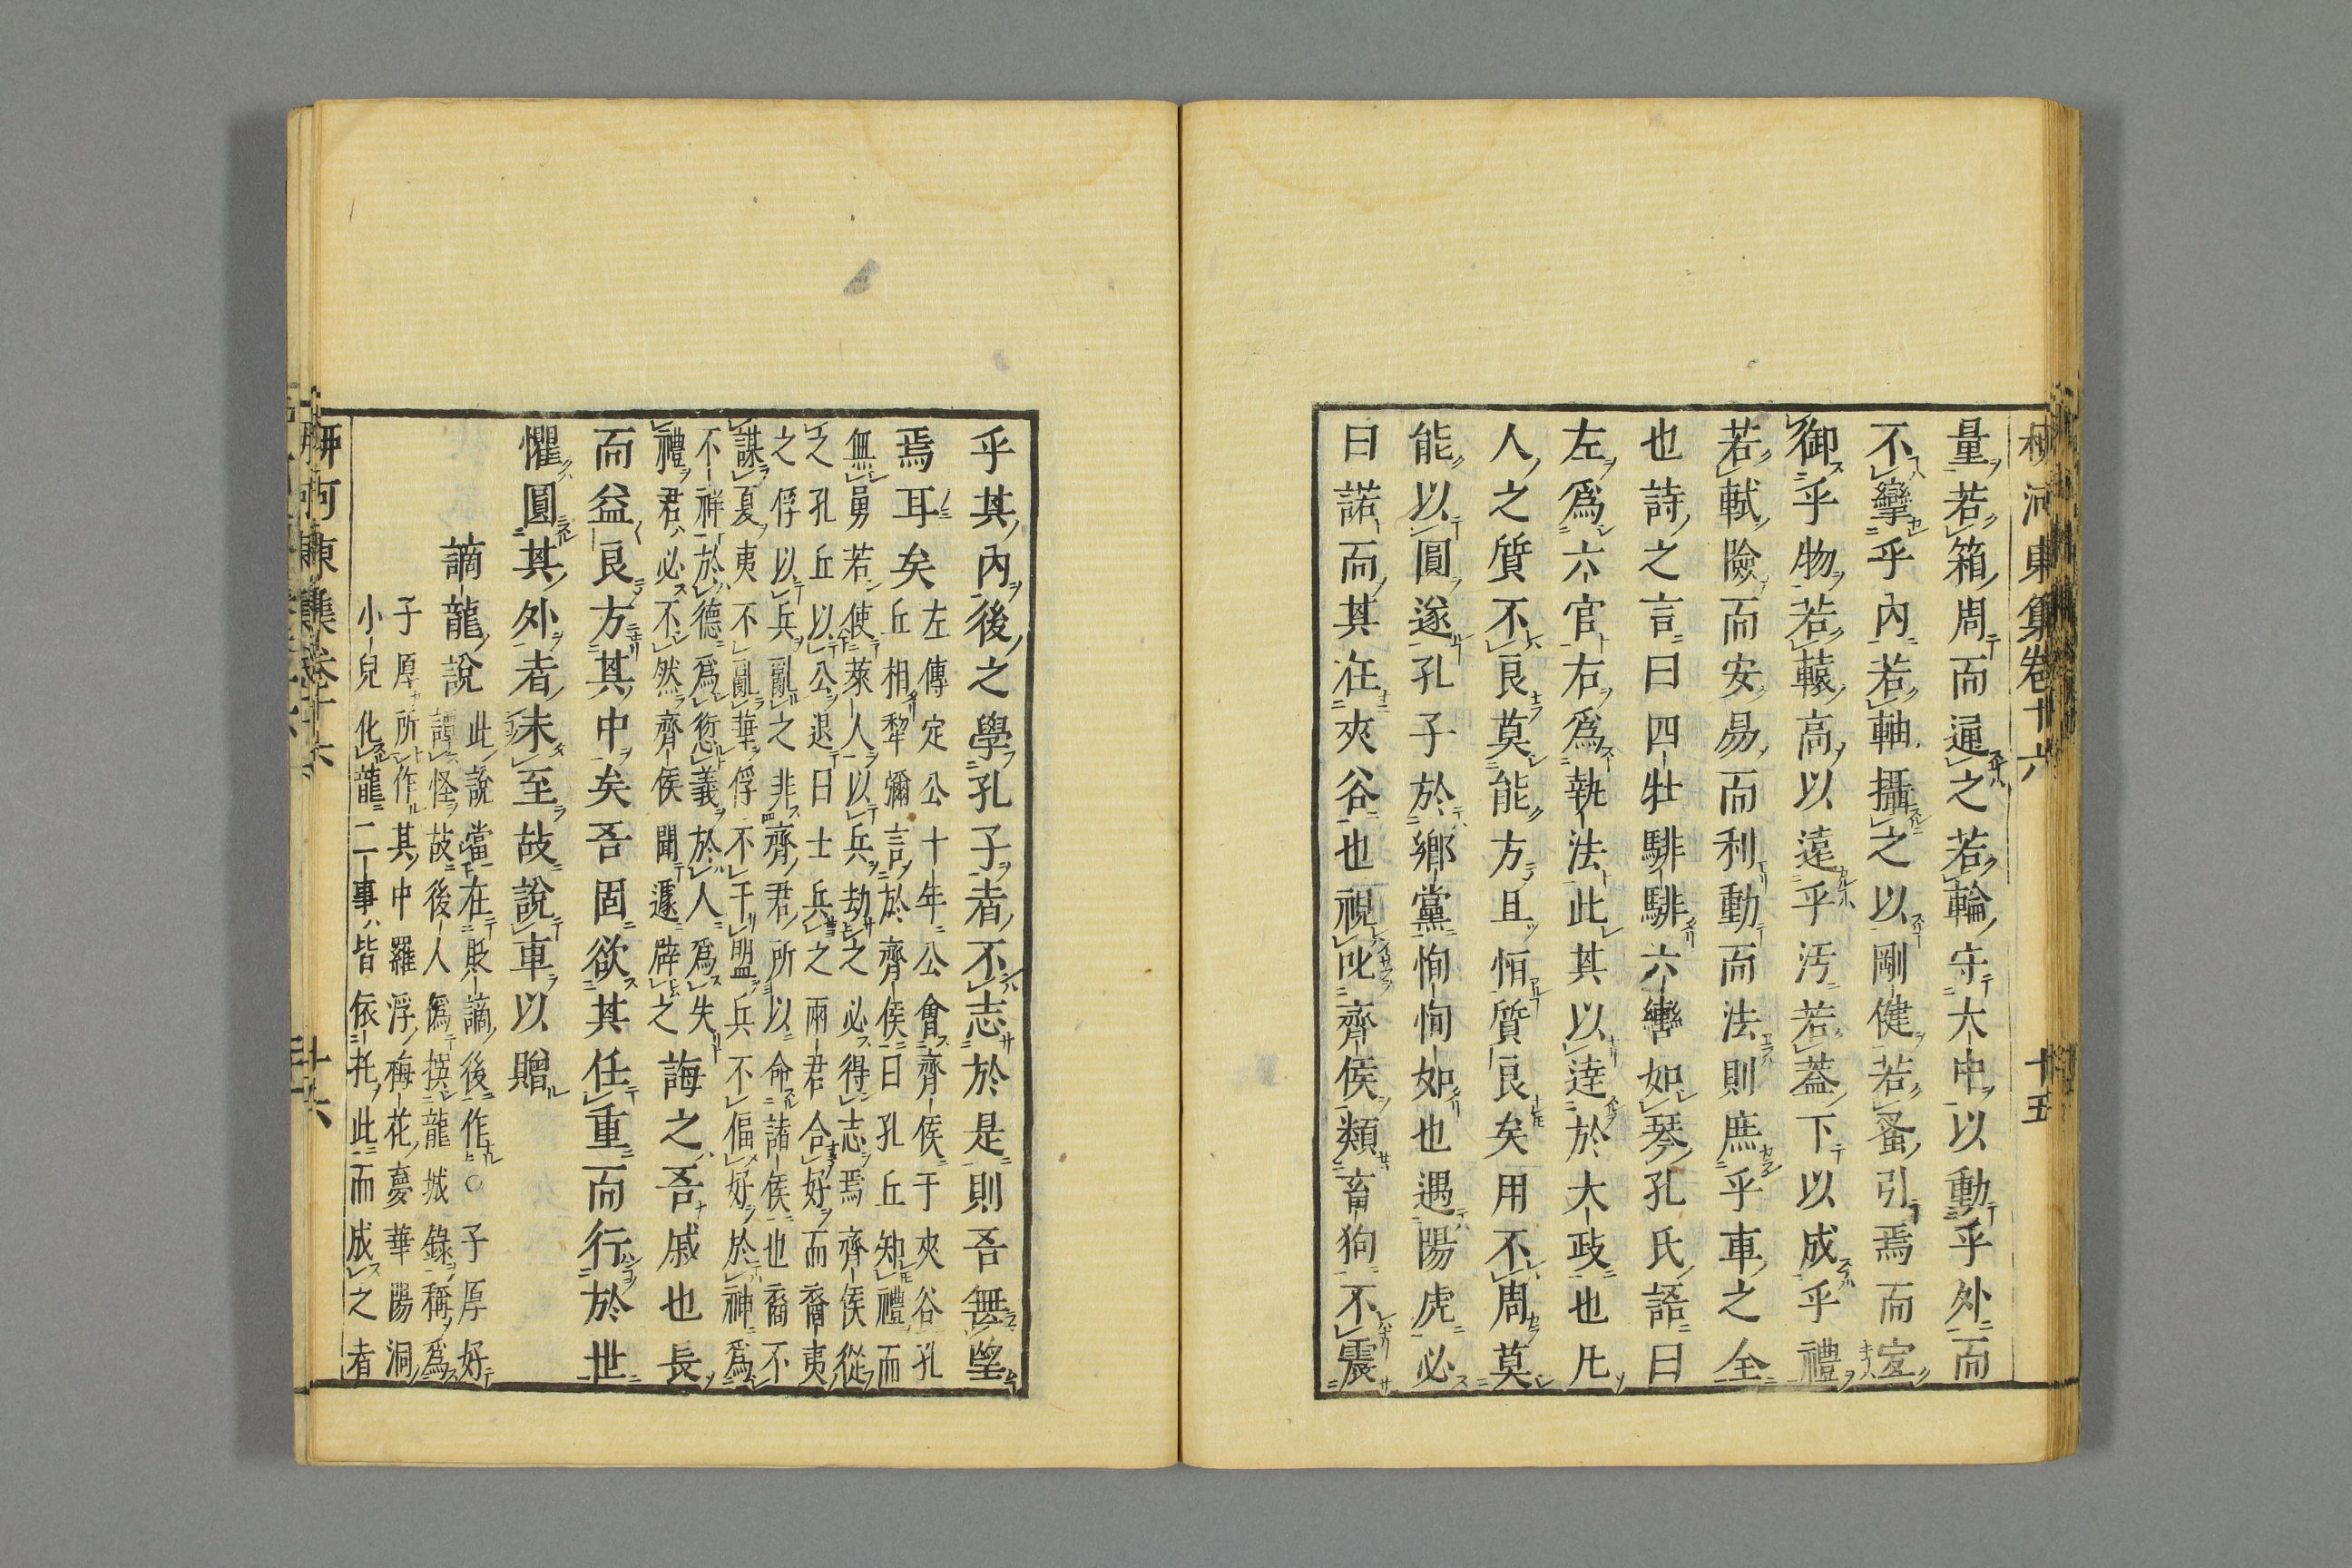 柳河東集卷十六 十五
量若箱周而通之若輪守大中以動乎外而
不攣乎內若軸攝之以剛健若蚤引焉而宜
御乎物若轅高以遠乎汚若蓋下以成乎禮
若軾險而安易而利動而法則庶乎車之全
也詩之言曰四牡騑騑六轡如琴孔氏語曰
左爲六官右爲執法此其以達於大政也凡
人之質不良莫能方且恒質良矣用不周莫
能以圓遂孔子於鄉黨恂恂如也遇陽虎必
曰諾而其在夾谷也視叱齊侯類畜狗不震
乎其內後之學孔子者不志於是則吾無望
焉耳矣
左傳定公十年公會齊侯于夾谷孔
丘相犂彌言於齊侯曰孔丘知禮而
無勇若使萊人以兵劫之必得志焉齊侯從
之孔丘以公退曰士兵之兩君合好而裔夷
之俘以兵亂之非齊君所以命諸侯也裔不
謀夏夷不亂華俘不干盟兵不偪好於神爲
不祥於德爲愆義於人爲失
禮君必不然齊侯聞遽辟之
誨之吾戚也長
而益良方其中矣吾固欲其任重而行於世
懼圓其外者未至故說車以贈
謫龍說
此說當在貶謫後作○子厚好
譚怪故後人僞撰龍城錄稱爲
子厚所作其中羅浮梅花夢華陽洞
小兒化龍二事皆依托此而成之者
柳河東集卷十六 十六